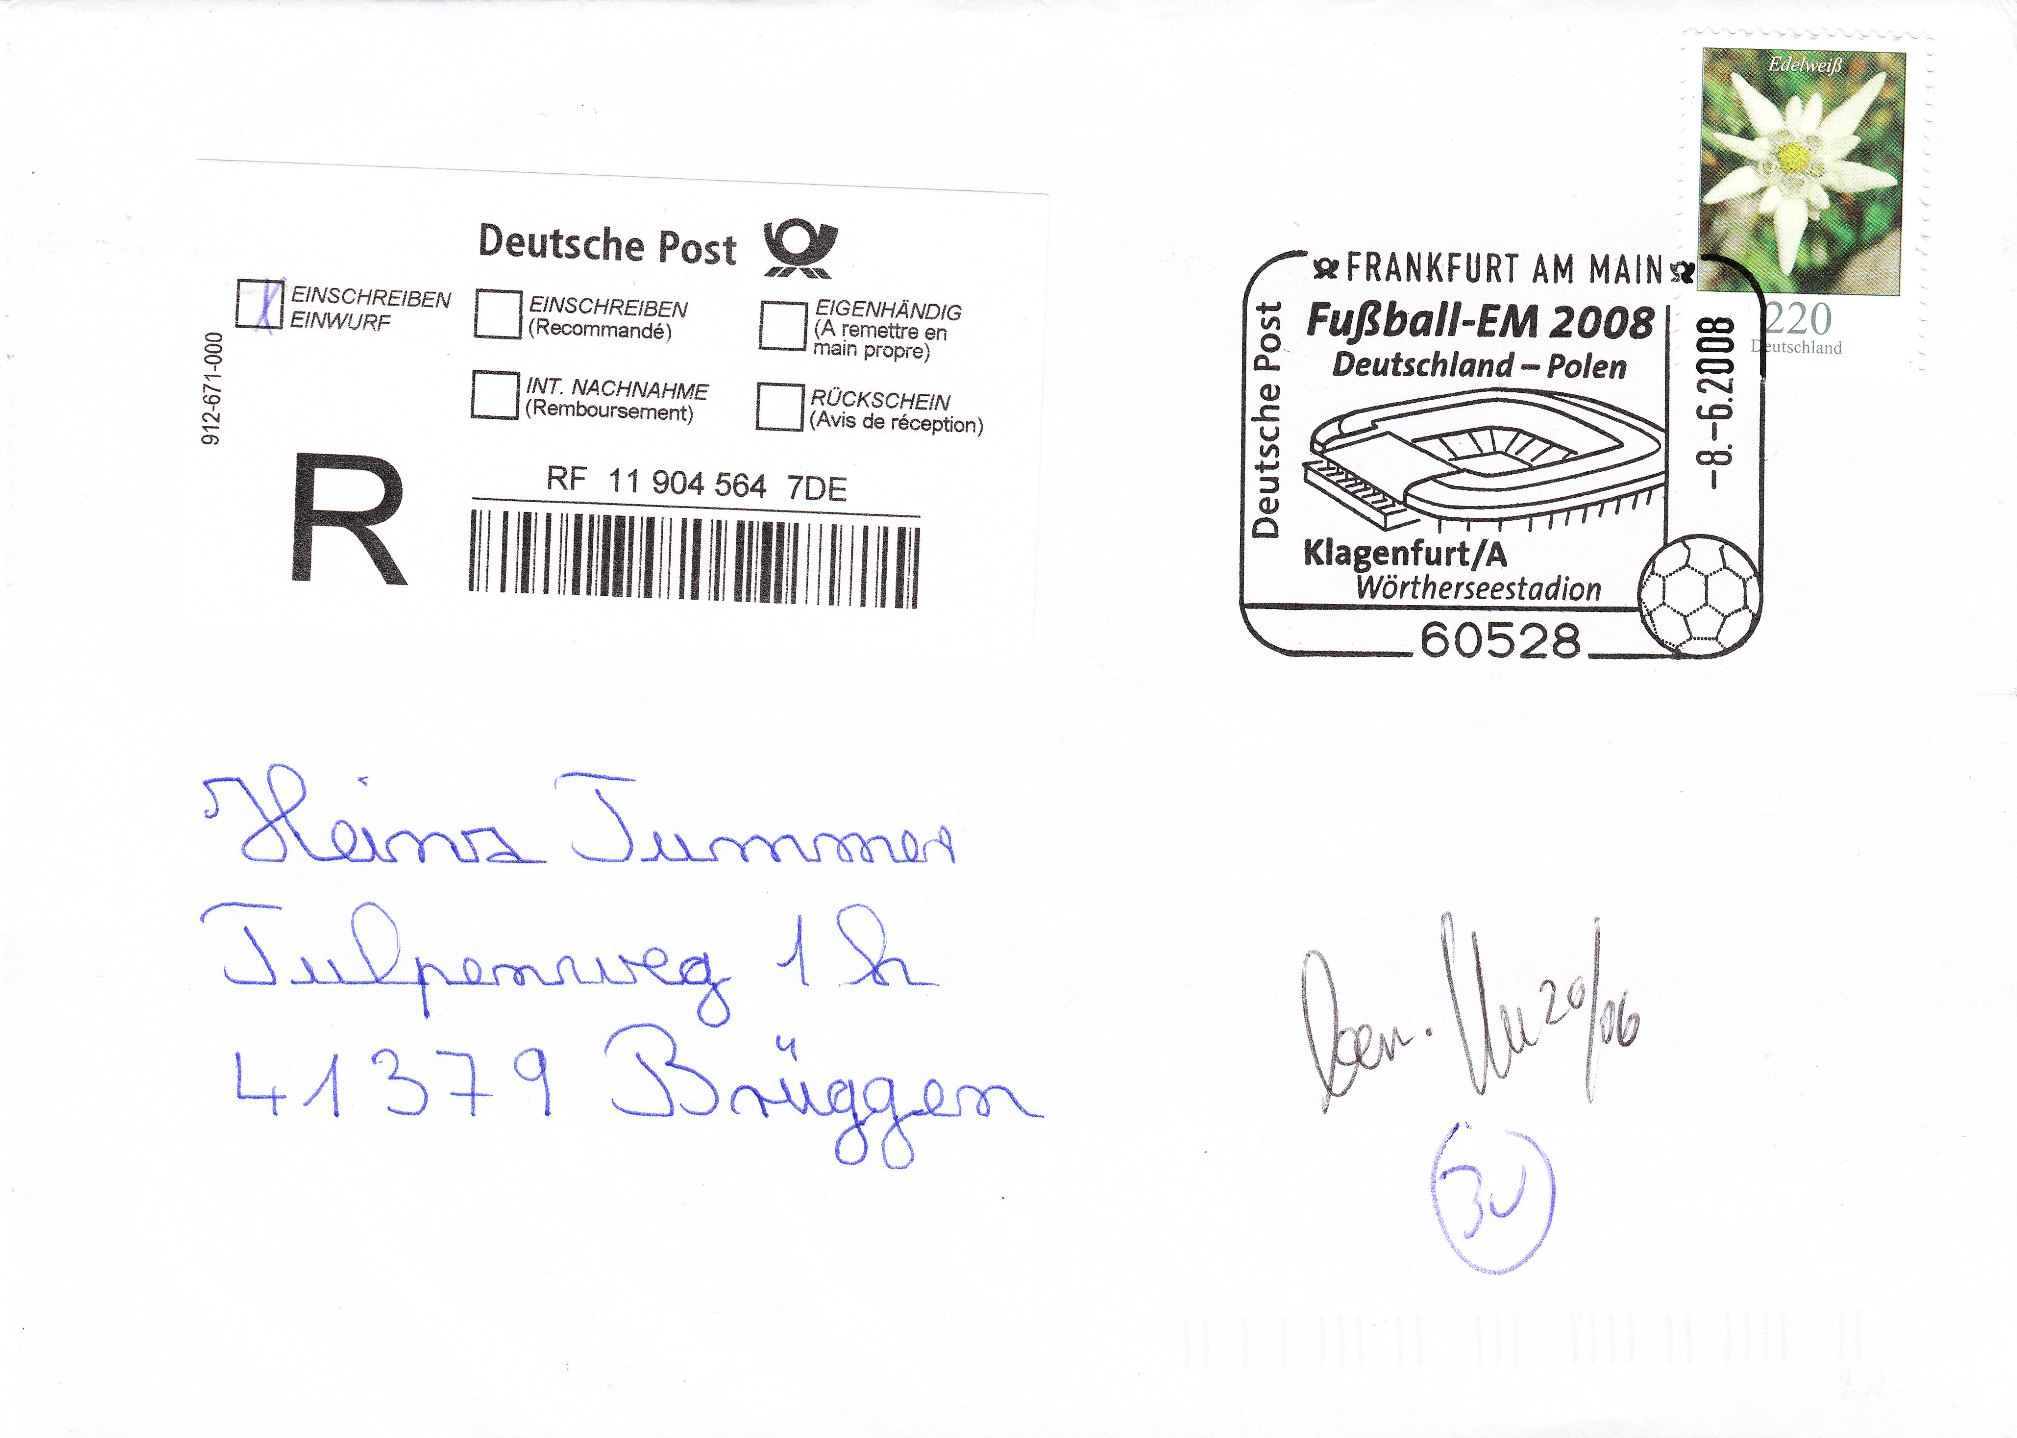 Edelweiß
220
Deutschland
Deutsche Post
EINSCHREIBEN
EINWURF
EINSCHREIBEN
(Recommandé)
EIGENHÄNDIG
(A remettre en
main propre)
INT. NACHNAHME
(Remboursement)
RÜCKSCHEIN
(Avis de réception)
912-671-000
R
RF 11 904 564 7DE
FRANKFURT AM MAIN
Deutsche Post
Fußball-EM 2008
Deutschland – Polen
Klagenfurt/A
Wörtherseestadion
–8.–6.2008
60528
Heinz Tummer
Tulpenweg 1h
41379 Brüggen
20/06